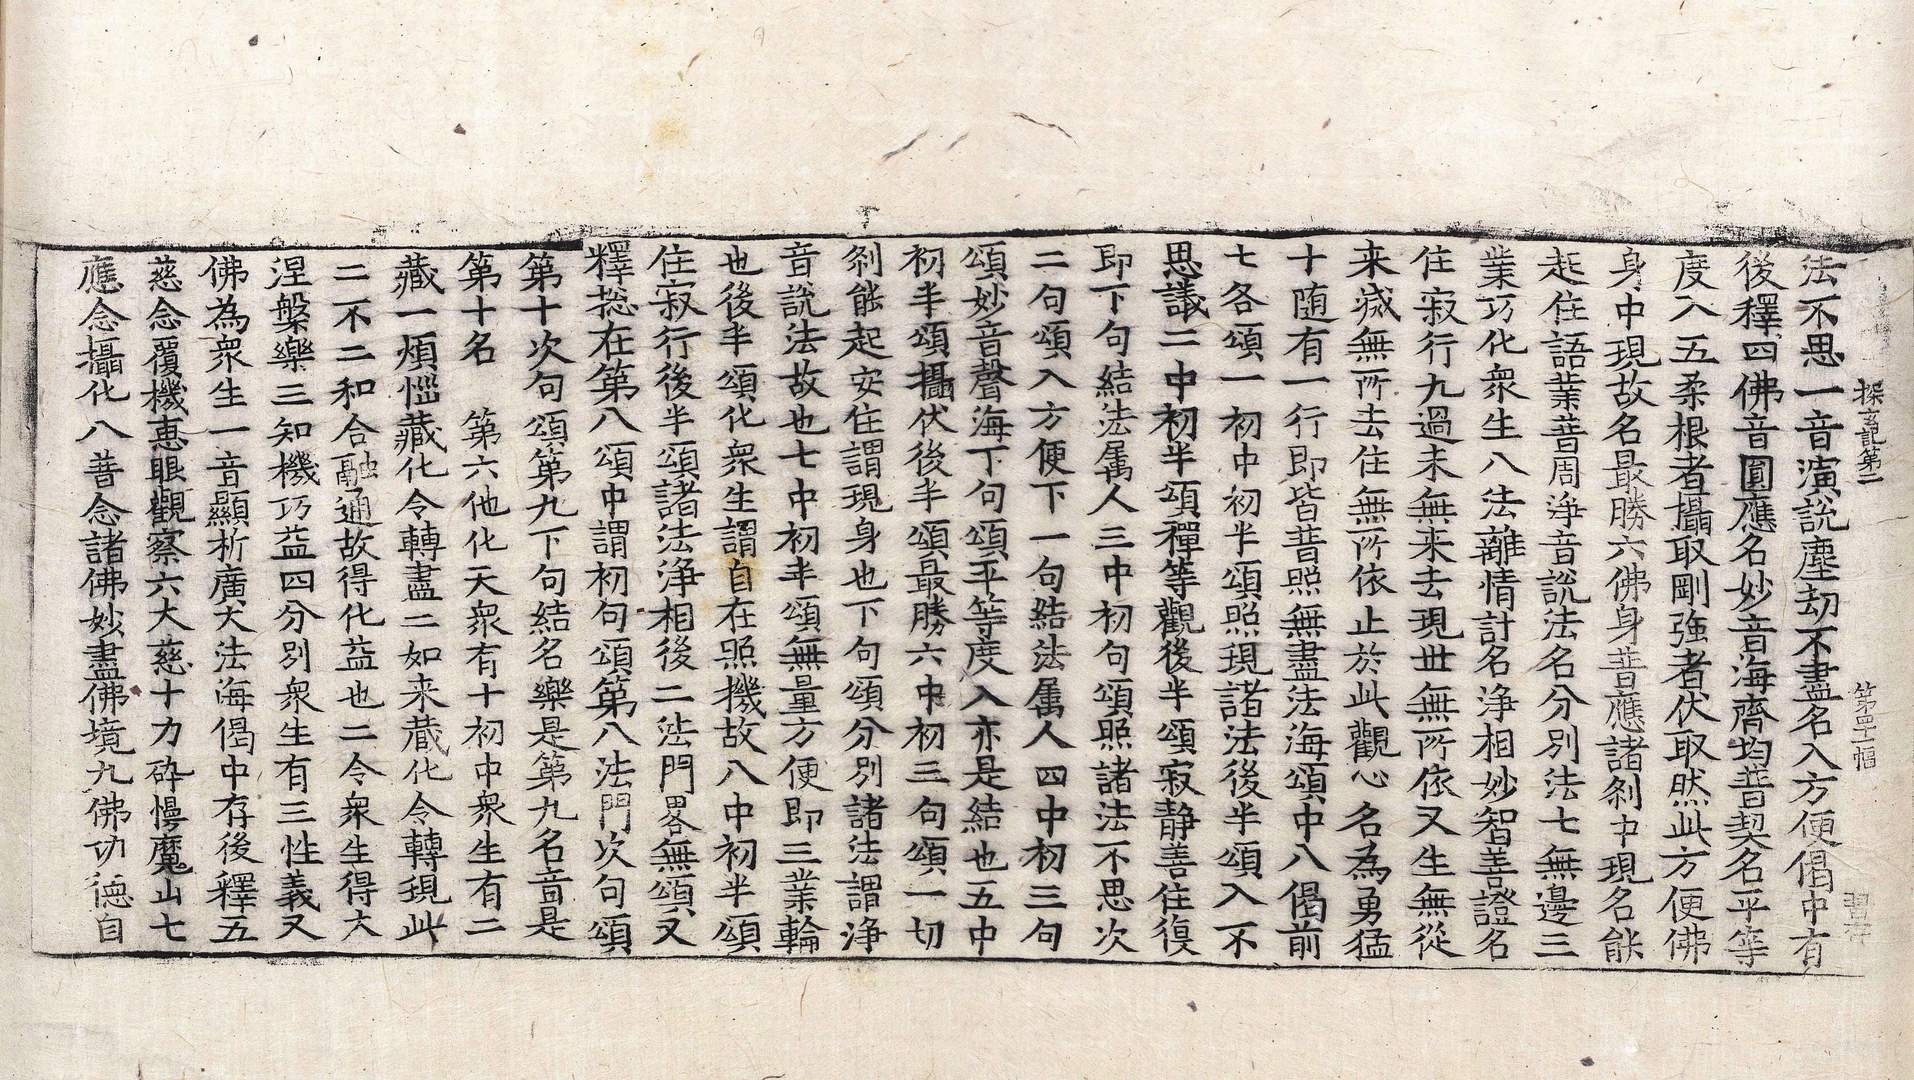 探玄記第二
第四十幅
法不思一音演說塵劫不盡名入方便偈中有
後釋四佛音圓應名妙音海齊均普契名平等
度入五柔根者攝取剛強者伏取然此方便佛
身中現故名最勝六佛身普應諸刹中現名能
起住語業普周淨音說法名分別法七無邊三
業巧化衆生八法離情計名淨相妙智善證名
住寂行九過未無来去現世無所依又生無從
来滅無所去住無所依止於此觀心名為勇猛
十随有一行即皆普照無盡法海頌中八偈前
七各頌一初中初半頌照現諸法後半頌入不
思議二中初半頌禪等觀後半頌寂静善住復
即下句結法属人三中初句頌照諸法不思次
二句頌入方便下一句結法属人四中初三句
頌妙音聲海下句頌平等度入亦是結也五中
初半頌攝伏後半頌最勝六中初三句頌一切
刹能起安住謂現身也下句頌分別諸法謂淨
音說法故也七中初半頌無量方便即三業輪
也後半頌化衆生謂自在照機故八中初半頌
住寂行後半頌諸法淨相後二法門畧無頌又
釋揔在第八頌中謂初句頌第八法門次句頌
第十次句頌第九下句結名樂是第九名音是
第十名　第六他化天衆有十初中衆生有二
藏一煩惱藏化令轉盡二如来藏化令轉現此
二不二和合融通故得化益也二令衆生得大
涅槃樂三知機巧益四分別衆生有三性義又
佛為衆生一音顯析廣大法海偈中存後釋五
慈念覆機恵眼觀察六大慈十力碎慢魔山七
應念攝化八普念諸佛妙盡佛境九佛功德自